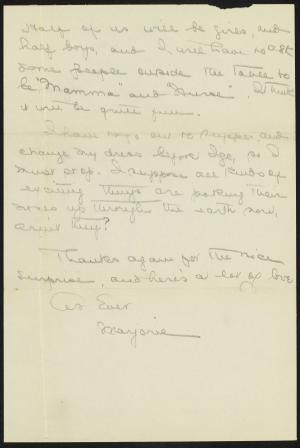 Half of us will be girls, and
half boys, and I will have to ask
some people outside the table to
be "Mamma" and "Nurse". I think
it will be quite fun.
I have to go out to supper, and
change my dress before I go, so I
must stop. I suppose all kinds of
exciting things are poking their
noses up through the earth now,
aren't they?
Thanks again for the nice
surprise, and here's a lot of love
As Ever
Marjorie